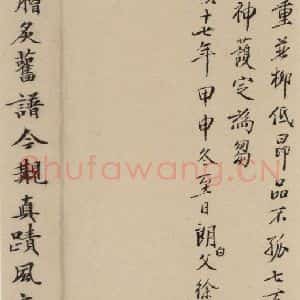 重並柳低昂品不孤七言
神護定誰芻
十七年甲申冬至日朗父徐
膾炙舊譜今觀真蹟風
Shufawang.CN